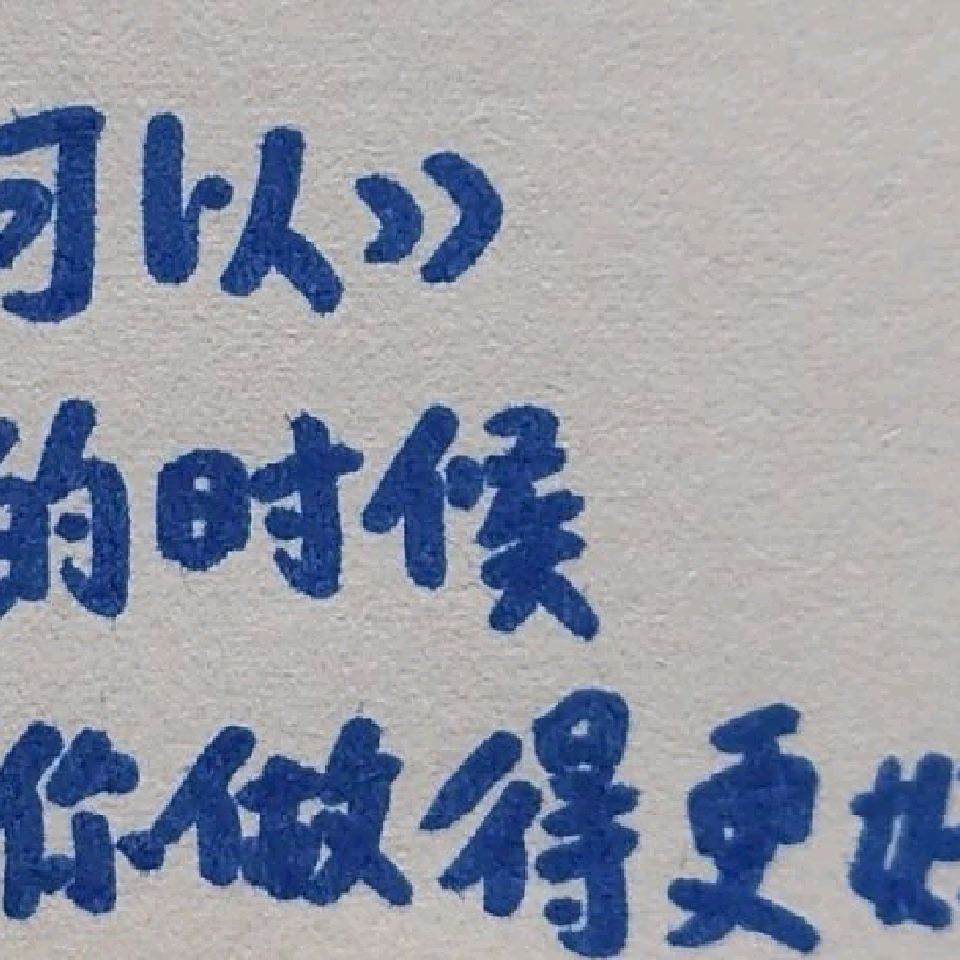 可以》
的时候
你做得更好